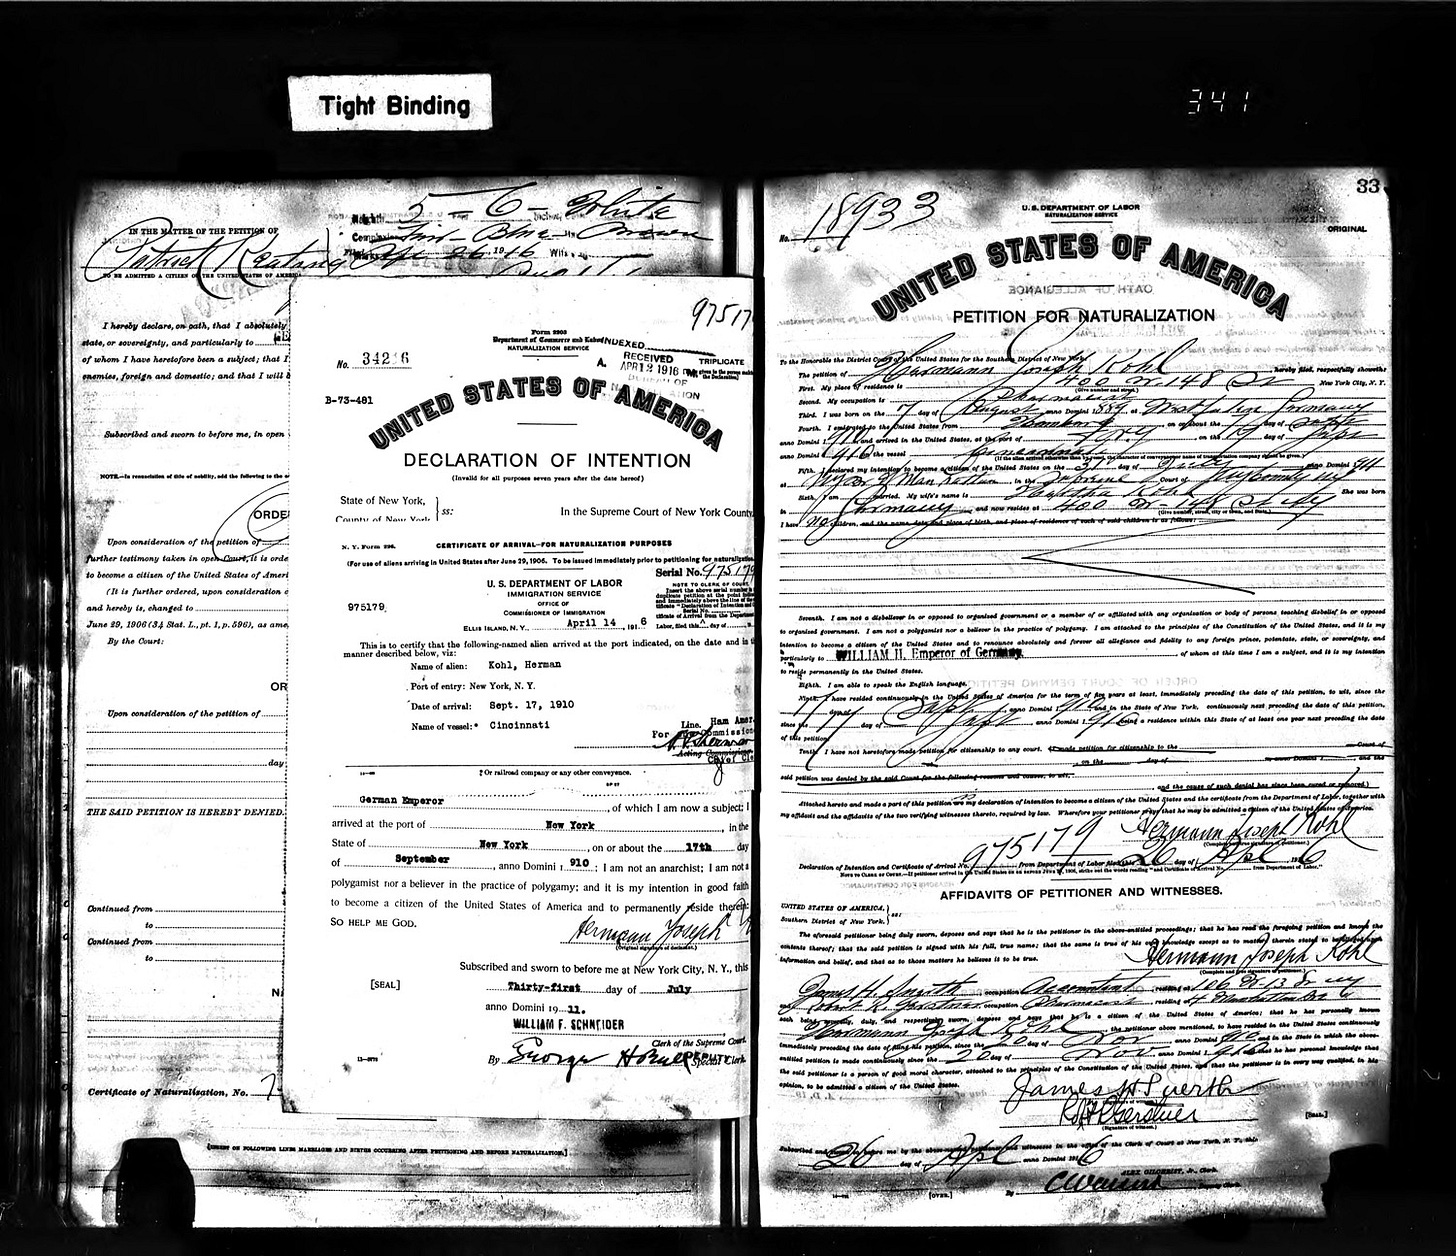 Tight Binding
341
IN THE MATTER OF THE PETITION OF
Patrick Keating
TO BE ADMITTED A CITIZEN OF THE UNITED STATES OF AMERICA
5 - 6 - White
Blue Brown
1916
I hereby declare, on oath, that I absolutely
state, or sovereignty, and particularly to
of whom I have heretofore been a subject; that I
enemies, foreign and domestic; and that I will b
Subscribed and sworn to before me, in open
NOTE.—In renunciation of title of nobility, add the following to the
ORDE
Upon consideration of the petition of
further testimony taken in open Court, it is orde
to become a citizen of the United States of Ameri
(It is further ordered, upon consideration o
and hereby is, changed to
June 29, 1906 (34 Stat. L., pt. 1, p. 596), as ame
By the Court:
OR
Upon consideration of the petition of
day
THE SAID PETITION IS HEREBY DENIED.
Continued from
to
Continued from
to
NA
Certificate of Naturalization, No. 7
97517
Form 2203
Department of Commerce and Labor
NATURALIZATION SERVICE
INDEXED
No. 34216
A.
RECEIVED
APR 12 1916
TRIPLICATE
B-73-481
UNITED STATES OF AMERICA
DECLARATION OF INTENTION
(Invalid for all purposes seven years after the date hereof)
State of New York,
County of New York
ss:
In the Supreme Court of New York County
N. Y. Form 226.
CERTIFICATE OF ARRIVAL—FOR NATURALIZATION PURPOSES
(For use of aliens arriving in United States after June 29, 1906. To be issued immediately prior to petitioning for naturalization
Serial No. 975179
U. S. DEPARTMENT OF LABOR
IMMIGRATION SERVICE
OFFICE OF
COMMISSIONER OF IMMIGRATION
975179
ELLIS ISLAND, N. Y., April 14, 1916
This is to certify that the following-named alien arrived at the port indicated, on the date and in
manner described below, viz:
Name of alien: Kohl, Herman
Port of entry: New York, N. Y.
Date of arrival: Sept. 17, 1910
Name of vessel:* Cincinnati
Line. Ham Amer
For
Acting Commissioner
Chief Cle
Or railroad company or any other conveyance.
German Emperor, of which I am now a subject; I
arrived at the port of New York, in the
State of New York, on or about the 17th day
of September anno Domini 1910; I am not an anarchist; I am not a
polygamist nor a believer in the practice of polygamy; and it is my intention in good faith
to become a citizen of the United States of America and to permanently reside therein:
SO HELP ME GOD.
Hermann Joseph
(Original signature of declarant.)
Subscribed and sworn to before me at New York City, N. Y., this
[SEAL]
Thirty-first day of July
anno Domini 1911.
WILLIAM F. SCHNEIDER
Clerk of the Supreme Court.
By George
DEPUTY Special Clerk.
33
No. 18933
U. S. DEPARTMENT OF LABOR
NATURALIZATION SERVICE
ORIGINAL
UNITED STATES OF AMERICA
PETITION FOR NATURALIZATION
To the Honorable the District Court of the United States for the Southern District of New York:
The petition of Hermann Joseph Kohl, hereby filed, respectfully showeth:
First. My place of residence is 400 W. 148 St New York City, N. Y.
(Give number and street.)
Second. My occupation is Pharmacist
Third. I was born on the 7 day of August anno Domini 1889 at Germany
Fourth. I emigrated to the United States from Hamburg on or about the 7 day of Sept
anno Domini 1910 and arrived in the United States, at the port of New York on the 17 day of Sept
anno Domini 1910 the vessel Cincinnati
(If the alien arrived otherwise than by vessel, the character of conveyance or name of transportation company should be given.)
Fifth. I declared my intention to become a citizen of the United States on the 31st day of July anno Domini 1911
at Manhattan, in the Supreme Court of
Sixth. I am married. My wife's name is Hertha Kohl She was born
in Germany and now resides at 400 W- 148 St City
(Give number, street, city or town, and State.)
I have no children, and the name, date and place of birth, and place of residence of each of said children is as follows:
Seventh. I am not a disbeliever in or opposed to organized government or a member of or affiliated with any organization or body of persons teaching disbelief in or opposed
to organized government. I am not a polygamist nor a believer in the practice of polygamy. I am attached to the principles of the Constitution of the United States, and it is my
intention to become a citizen of the United States and to renounce absolutely and forever all allegiance and fidelity to any foreign prince, potentate, state, or sovereignty, and
particularly to WILLIAM II, Emperor of Germany, of whom at this time I am a subject, and it is my intention
to reside permanently in the United States.
Eighth. I am able to speak the English language.
Ninth. I have resided continuously in the United States of America for the term of five years at least, immediately preceding the date of this petition, to wit, since the
17 day of Sept, anno Domini 1910 and in the State of New York, continuously next preceding the date of this petition,
since the 17 day of Sept anno Domini 1910, being a residence within this State of at least one year next preceding the date
of this petition.
Tenth. I have not heretofore made petition for citizenship to any court. (I made petition for citizenship to the Court of
on the day of anno Domini 1 and the
said petition was denied by the said Court for the following reasons and causes, to wit,
and the cause of such denial has since been cured or removed.)
Attached hereto and made a part of this petition are my declaration of intention to become a citizen of the United States and the certificate from the Department of Labor, together with
my affidavit and the affidavits of the two verifying witnesses thereto, required by law. Wherefore your petitioner prays that he may be admitted a citizen of the United States of America.
Hermann Joseph Kohl
(Complete and true signature of petitioner.)
Declaration of Intention and Certificate of Arrival No. 975179 from Department of Labor filed this 26 day of Apl 1916
AFFIDAVITS OF PETITIONER AND WITNESSES.
UNITED STATES OF AMERICA,
Southern District of New York.
ss:
The aforesaid petitioner being duly sworn, deposes and says that he is the petitioner in the above-entitled proceedings; that he has read the foregoing petition and knows the
contents thereof; that the said petition is signed with his full, true name; that the same is true of his own knowledge except as to matters therein stated to be alleged upon
information and belief, and that as to those matters he believes it to be true.
Hermann Joseph Kohl
(Complete and true signature of petitioner.)
James H. occupation Accountant, residing at 106 W 13 St
and Robert occupation Pharmacist, residing at 4 Manhattan Ave
each being severally, duly, and respectively sworn, deposes and says that he is a citizen of the United States of America; that he has personally known
Hermann Joseph Kohl, the petitioner above mentioned, to have resided in the United States continuously
immediately preceding the date of filing his petition, since the 20 day of Nov anno Domini 1910 and in the State in which the above-
entitled petition is made continuously since the 20 day of Nov anno Domini 1910 and that he has personal knowledge that
the said petitioner is a person of good moral character, attached to the principles of the Constitution of the United States, and that the petitioner is in every way qualified, in his
opinion, to be admitted a citizen of the United States.
James H
(Signature of witness.)
[SEAL.]
Subscribed and sworn to before me by the above-named petitioner and witnesses in the office of the Clerk of Court at New York, N. Y., this
26 day of Apl anno Domini 1916
ALEX GILCHRIST, Jr., Clerk.
By Deputy Clerk.
[OVER.]